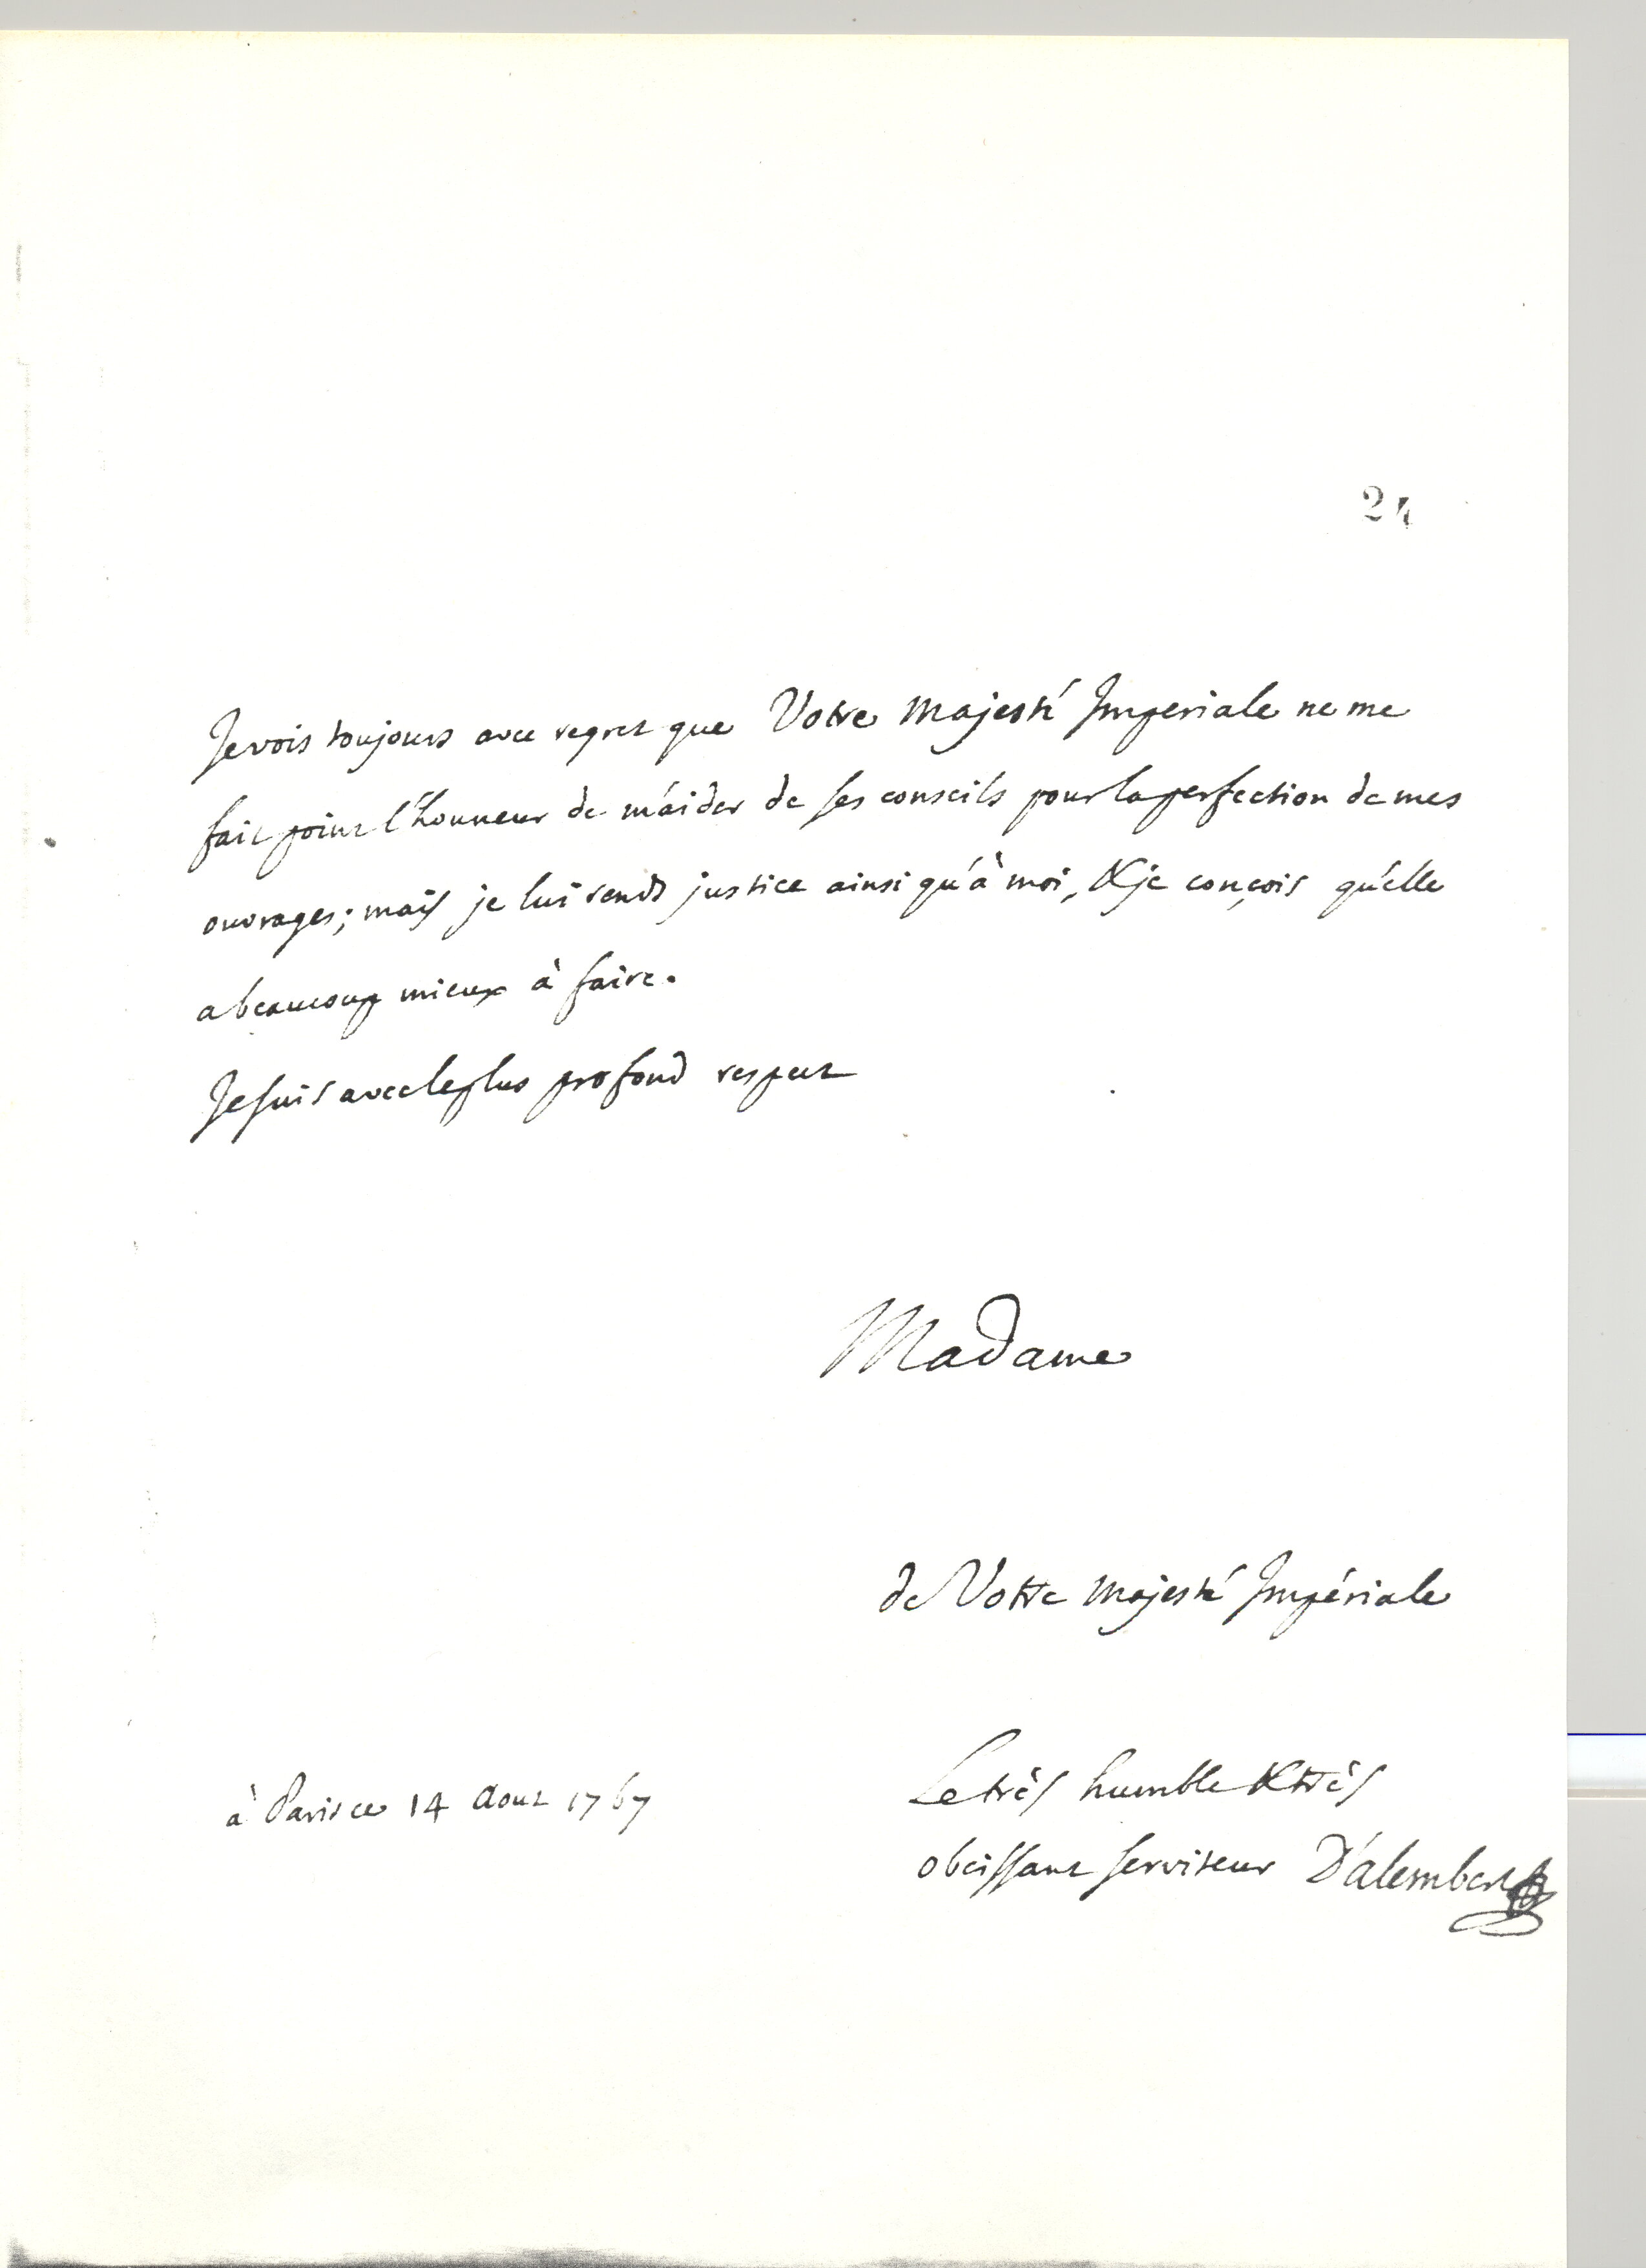 24
Je vois toujours avec regret que Votre Majesté Imperiale ne me
fait point l'honneur de m'aider de ses conseils pour la perfection de mes
ouvrages; mais je lui rends justice ainsi qu'à moi, & je conçois qu'elle
a beaucoup mieux à faire.
Je suis avec le plus profond respect
Madame
de Votre Majesté Impériale
Le très humble & très
à Paris ce 14 Aout 1767
obeissant serviteur D'alembert